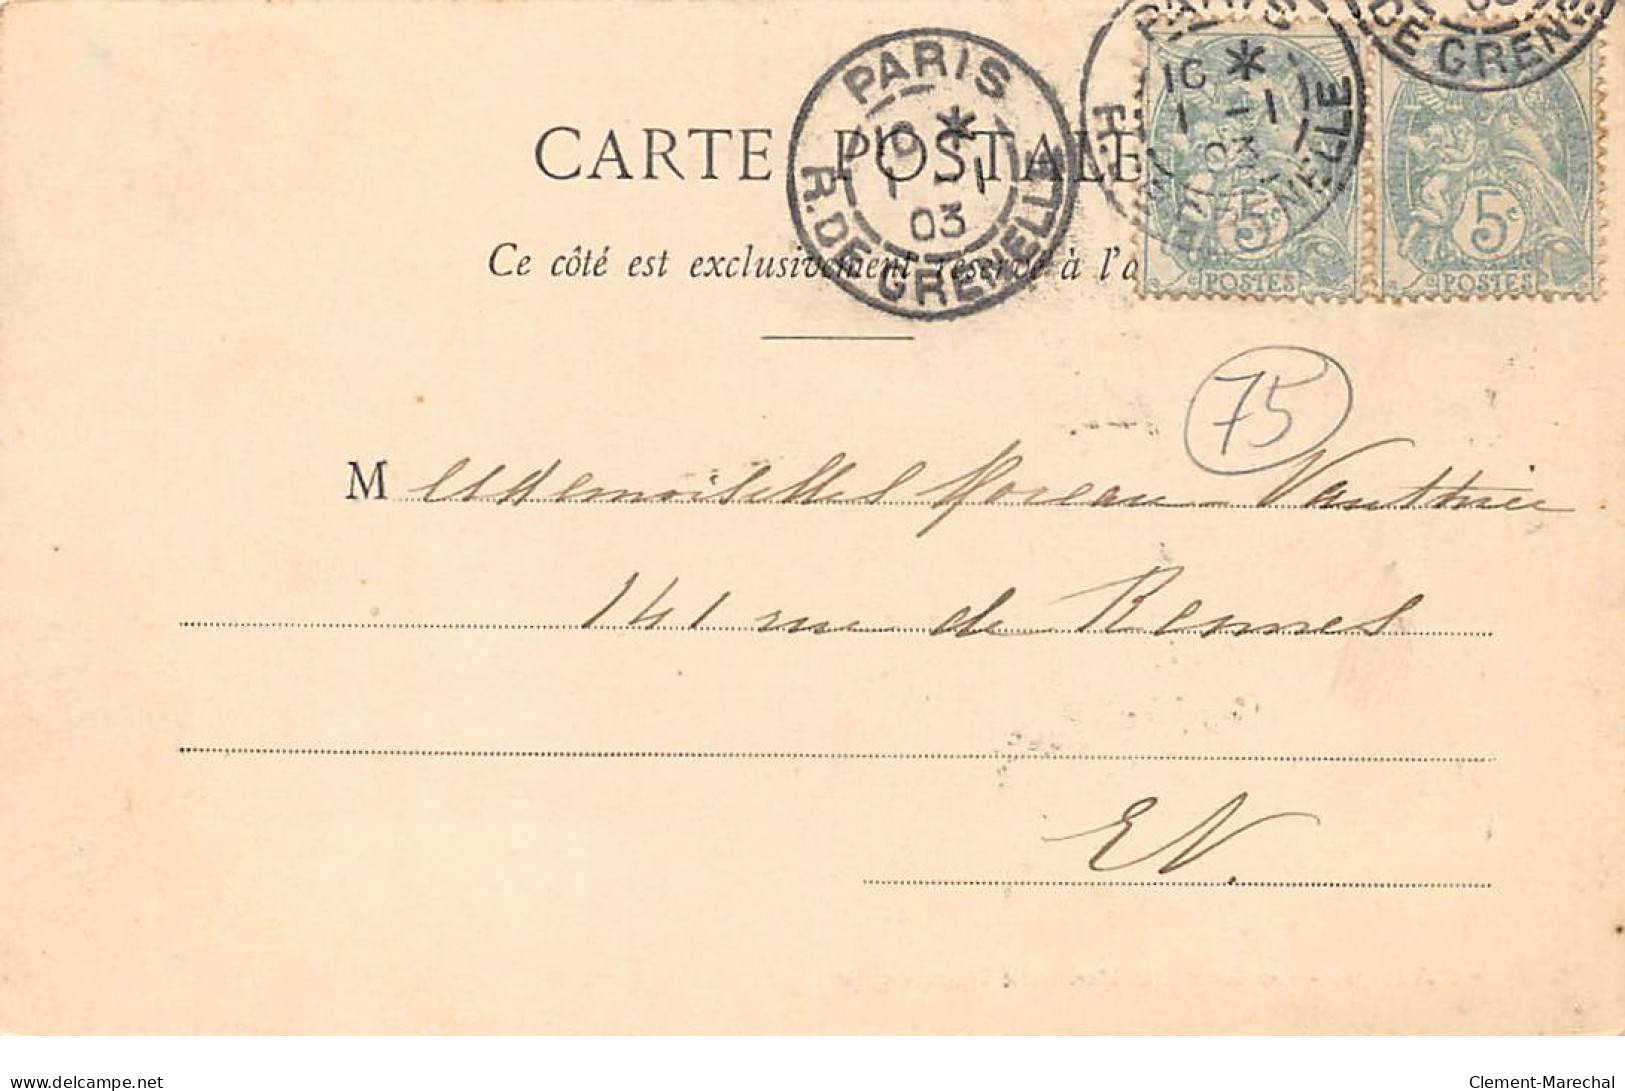 PARIS
10 *
1 - 1
03
R. DE GRENELLE
PARIS
10 *
1 - 1
03
R. DE GRENELLE
03
DE GREN
5c
POSTES
5c
POSTES
CARTE POSTALE
Ce côté est exclusivement réservé à l'a
75
Mesdemoiselles Moreau Vauthier
141 rue de Rennes
EV.
delcampe.net
Clement-Marechal